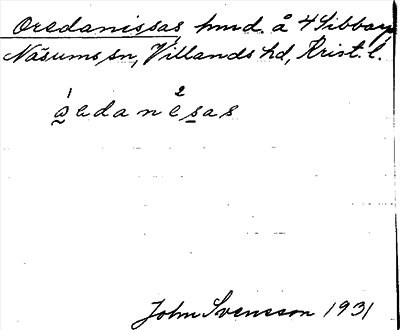 Oredanissas, hmd. å 4 Sibbarp
Näsums sn, Villands hd, Krist. l.
1 2
ꭤedanesas
John Svensson 1931